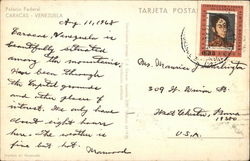 Palacio Federal
CARACAS - VENEZUELA
TARJETA POSTAL
Aug. 11, 1968
Caracas, Venezuela is
beautifully situated
among the mountains.
Have been through
the Capitol grounds
and other places of
interest. We only have
about eight hours
here. The weather is
fine but hot.
Mrs. Marnie J.
309 W. Union St.
West Chester, Penna
19380
U.S.A.